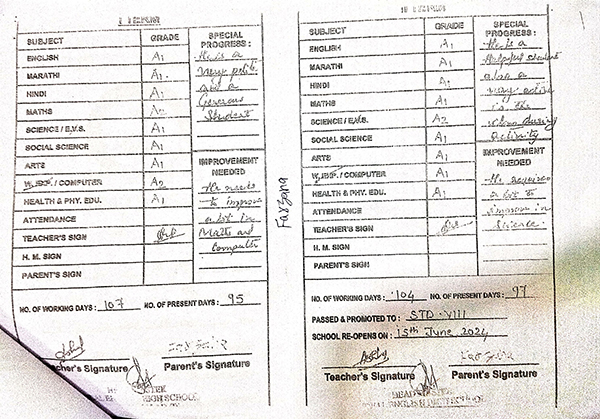 SUBJECT GRADE SPECIAL PROGRESS :
ENGLISH A1 He is a
MARATHI A1 very polite
HINDI A1 and a
MATHS A2 Generous
SCIENCE / E.V.S. A1 Student
SOCIAL SCIENCE A1
ARTS A1 IMPROVEMENT NEEDED
W. EXP. / COMPUTER A2 He needs
HEALTH & PHY. EDU. A1 to improve
ATTENDANCE a lot in
TEACHER'S SIGN Maths and
H. M. SIGN Computer
PARENT'S SIGN
NO. OF WORKING DAYS : 107 NO. OF PRESENT DAYS : 95
Teacher's Signature Parent's Signature
HIGH SCHOOL
Farzana
II TERM
SUBJECT GRADE SPECIAL PROGRESS :
ENGLISH A1 He is a
MARATHI A1 Helpful student
HINDI A1 also a
MATHS A1 very active
SCIENCE / E.V.S. A2 in the
SOCIAL SCIENCE A1 class during
ARTS A1 activity
W. EXP. / COMPUTER A1 IMPROVEMENT NEEDED
HEALTH & PHY. EDU. A1 He requires
ATTENDANCE a lot to
TEACHER'S SIGN improve in
H. M. SIGN Science
PARENT'S SIGN
NO. OF WORKING DAYS : 104 NO. OF PRESENT DAYS : 97
PASSED & PROMOTED TO : STD-VIII
SCHOOL RE-OPENS ON : 15th June 2024
Teacher's Signature Parent's Signature